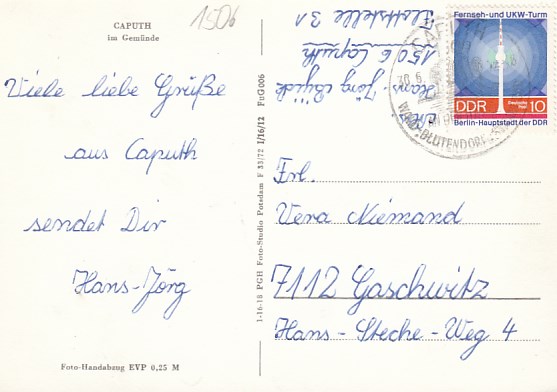 CAPUTH
im Gemünde
1506
Viele liebe Grüße
aus Caputh
sendet Dir
Hans-Jörg
Foto-Handabzug EVP 0,25 M
1-16-18 PGH Foto-Studio Potsdam F 33/72 I/16/12 FuG 006
Hans-Jörg
1506 Caputh
Fernseh- und UKW-Turm
DDR
Deutsche Post
10
Berlin-Hauptstadt der DDR
CAPUTH
30.6.
BLÜTENDORF
Frl.
Vera Niemand
7112 Gaschwitz
Hans-Steche-Weg 4